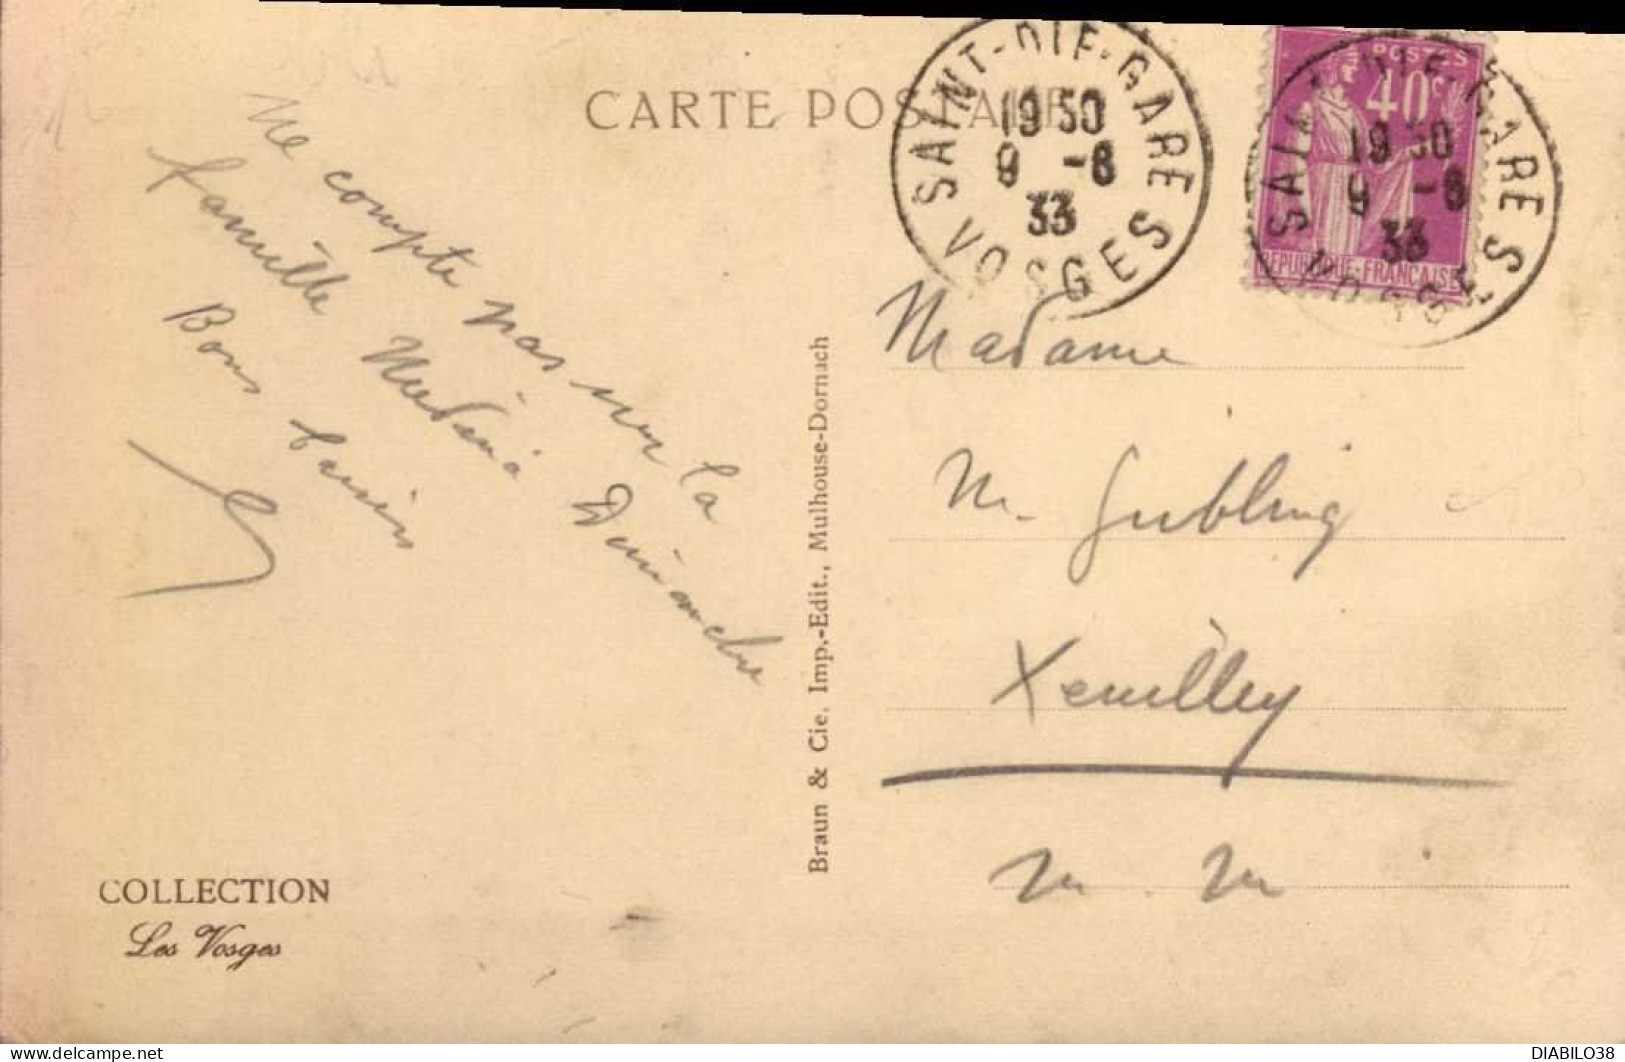 CARTE POSTALE
SAINT-DIE-GARE
19 30
9 -8
33
VOSGES
POSTES
40c
REPUBLIQUE FRANCAISE
SAINT-DIE-GARE
19 30
9 -8
33
VOSGES
Ne compte pas sur la
famille Dimanche
Bons baisers
Madame
M. Gubling
Xeuilley
M. M
Braun & Cie, Imp.-Edit., Mulhouse-Dornach
COLLECTION
Les Vosges
DELCAMPE.NET
DIABILO38